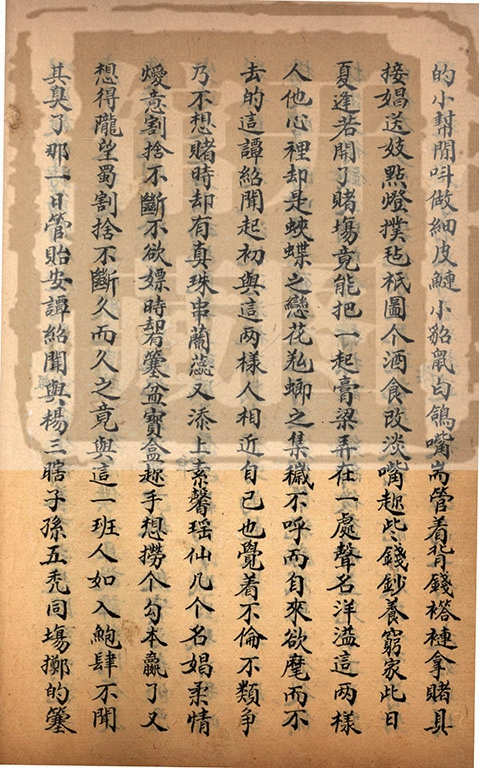 的小幫閒叫做細皮鰱小貂鼠白鴿嘴耑管着背錢褡褳拿賭具
接娼送妓點燈撲毡祇圖个酒食改淡嘴趂些錢鈔養窮家此日
夏逢若開了賭塲竟能把一起膏梁弄在一處聲名洋溢這兩樣
人他心裡却是蛺蝶之戀花羌螂之集穢不呼而自來欲麾而不
去的這譚紹聞起初與這兩樣人相近自己也覺着不倫不類争
乃不想賭時却有真珠串蘭蕊又添上素馨瑶仙几个名娼柔情
燰意割捨不斷不欲嫖時却有簍盆寶盒趂手想撈个勾本贏了又
想得隴望蜀割捨不斷久而久之竟與這一班人如入鮑肆不聞
其臭了那一日管貽安譚紹聞與楊三瞎子孫五秃同塲擲的簍